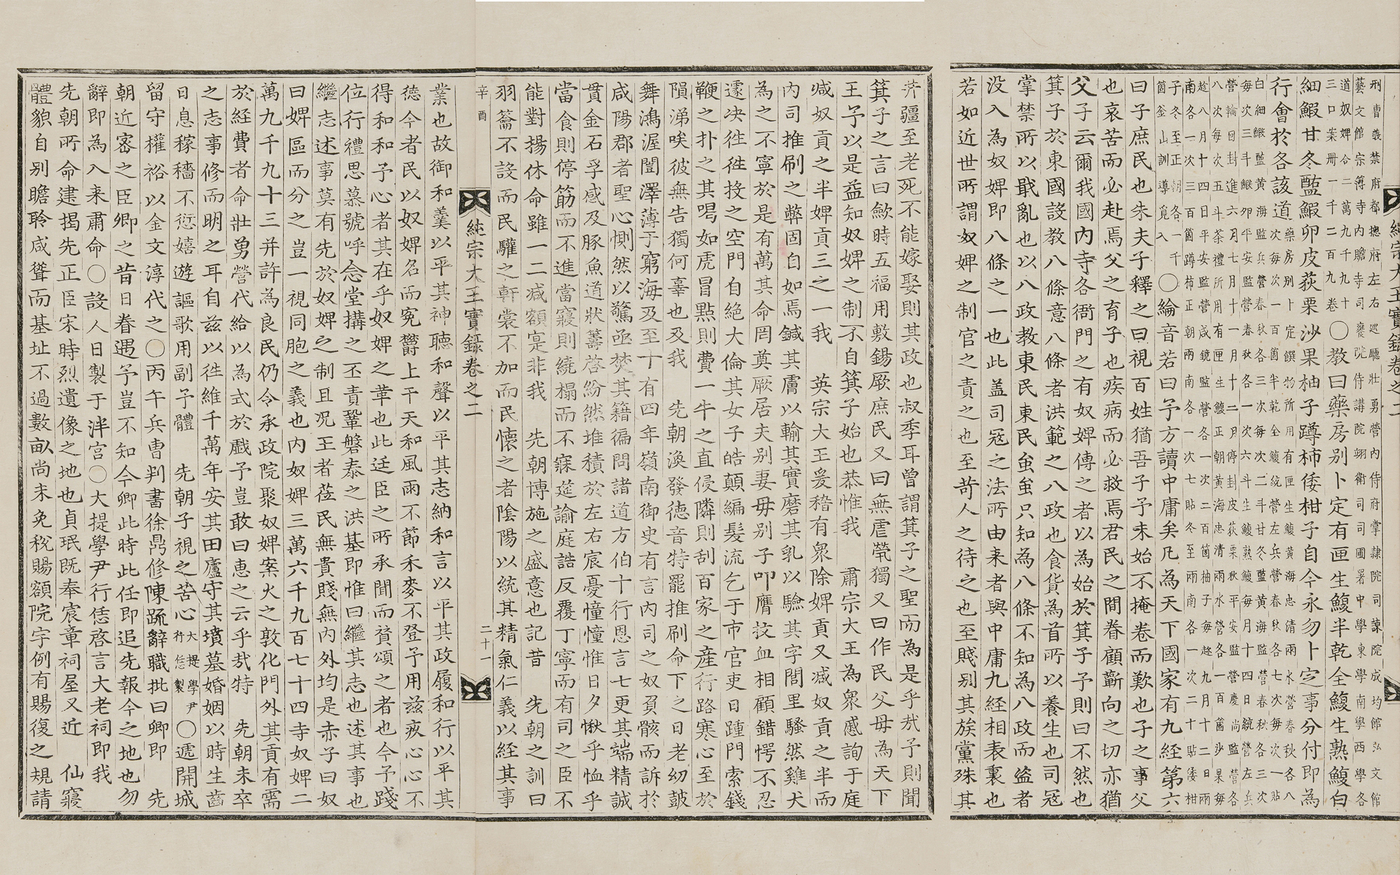 刑曹義禁府都摠府左右巡廳壯勇營內侍府掌隷院司諫院成均館弘文館
藝文館宗簿寺內贍寺司䆃院侍講院翊衛司司圃署中學東學南學西學各
道奴婢合二萬九千九十
三口案冊一千二百九卷
○敎曰藥房別卜定有匣生鰒半乾全鰒生熟鰒白
細鰕甘冬醢鰕卵皮荻栗沙果柚子蹲柿倭柑子自今永勿卜定事分付卽爲
行會於各該道
○綸音若曰予方讀中庸矣凡爲天下國家有九經第六
曰子庶民也朱夫子釋之曰視百姓猶吾子予未始不掩卷而歎也子之事父
也哀苦而必赴焉父之育子也疾病而必救焉君民之間眷顧蘄向之切亦猶
父子云爾我國內寺各衙門之有奴婢傳之者以爲始於箕子予則曰不然也
箕子於東國設敎八條意八條者洪範之八政也食貨爲首所以養生也司寇
掌禁所以戢亂也以八政敎東民東民蚩蚩只知爲八條不知爲八政而盜者
沒入爲奴婢卽八條之一也此蓋司寇之法所由來者與中庸九經相表裏也
若如近世所謂奴婢之制官之責之也至苛人之待之也至賤別其族黨殊其
井疆至老死不能嫁娶則其政也叔季耳曾謂箕子之聖而爲是乎哉予則聞
箕子之言曰歛時五福用敷錫厥庶民又曰無虐煢獨又曰作民父母爲天下
王予以是益知奴婢之制不自箕子始也恭惟我　肅宗大王爲衆感詢于庭
減奴貢之半婢貢三之一我　英宗大王爰稽有衆除婢貢又減奴貢之半而
內司推刷之弊固自如焉鍼其膚以輸其實磨其乳以驗其字閭里騷然雞犬
爲之不寧於是有萬其命罔奠厥居夫別妻母別子叩膺抆血相顧錯愕不忍
遽決往往投之空門自絕大倫其女子皓顚編髮流乞于市官吏日踵門索錢
鞭之扑之其喝如虎冒點則費一牛之直侵隣則刮百家之産行路寒心至於
隕涕唉彼無告獨何辜也及我　先朝渙發德音特罷推刷命下之日老幼鼓
舞鴻渥闓澤薄于窮海及至丁有四年嶺南御史有言內司之奴貿骸而訴於
咸陽郡者聖心惻然以驚亟焚其籍徧問諸道方伯十行恩言七更其端精誠
貫金石孚感及豚魚道狀籌啓紛然堆積於左右宸憂憧憧惟日夕愀乎恤乎
當食則停筯而不進當寢則繞榻而不寐筵諭庭誥反覆丁寧而有司之臣不
能對揚休命雖一二減額寔非我　先朝博施之盛意也記昔　先朝之訓曰
羽籥不設而民驩之軒裳不加而民懷之者陰陽以統其精氣仁義以經其事
辛酉
純宗大王實錄卷之二
二十一
業也故御和羹以平其神聽和聲以平其志納和言以平其政履和行以平其
德今者民以奴婢名而寃欝上干天和風雨不節禾麥不登予用玆疚心心不
得和和予心者其在乎奴婢之革也此廷臣之所承聞而贊頌之者也今予踐
位行禮思慕號呼念堂搆之丕責鞏磐泰之洪基卽惟曰繼其志也述其事也
繼志述事莫有先於奴婢之制且況王者莅民無貴賤無內外均是赤子曰奴
曰婢區而分之豈一視同胞之義也內奴婢三萬六千九百七十四寺奴婢二
萬九千九十三并許爲良民仍令承政院聚奴婢案火之敦化門外其貢有需
於經費者命壯勇營代給以爲式於戲予豈敢曰惠之云乎哉特　先朝未卒
之志事修而明之耳自玆以徃維千萬年安其田廬守其墳墓婚姻以時生齒
日息稼穡不愆嬉遊謳歌用副予體　先朝子視之苦心
大提學尹
行恁製
○遞開城
留守權裕以金文淳代之○丙午兵曹判書徐鼎修陳疏辭職批曰卿卽　先
朝近密之臣卿之昔日眷遇予豈不知今卿此時此任卽追先報今之地也勿
辭卽爲入來肅命○設人日製于泮宮○大提學尹行恁啓言大老祠卽我
先朝所命建揭先正臣宋時烈遺像之地也貞珉旣奉宸章祠屋又近　仙寢
體貌自別瞻聆咸聳而基址不過數畝尙未免稅賜額院宇例有賜復之規請